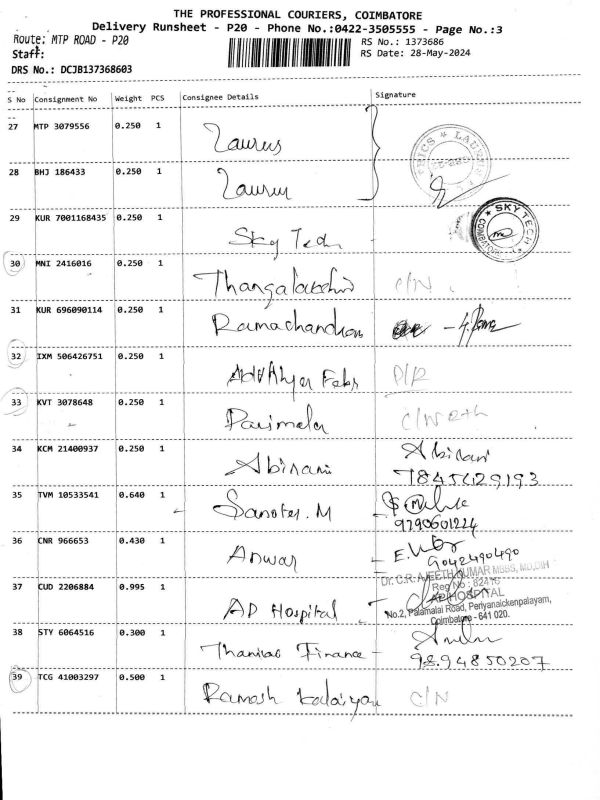 THE PROFESSIONAL COURIERS, COIMBATORE
Delivery Runsheet - P20 - Phone No.:0422-3505555 - Page No.:3
Route: MTP ROAD - P20
RS No.: 1373686
Staff:
RS Date: 28-May-2024
DRS No.: DCJB137368603
S No Consignment No Weight PCS Consignee Details Signature
27 MTP 3079556 0.250 1 Laurus
28 BHJ 186433 0.250 1
29 KUR 7001168435 0.250 1 Sky Tech
SKY TECH
COIMBATORE
30 MNI 2416016 0.250 1 C/N
31 KUR 696090114 0.250 1 Ramachandran
32 IXM 506426751 0.250 1 D/R
33 KVT 3078648 0.250 1 Parimala C/N
34 KCM 21400937 0.250 1 Abirami Abirami
7845629193
35 TVM 10533541 0.640 1
9790601224
36 CNR 966653 0.430 1 Anwar
9042490490
37 CUD 2206884 0.995 1 AP Hospital
Dr. C.R. AJEETH KUMAR MBBS, MD, DIH
Reg No : 82416
AP HOSPITAL
No.2, Palamalai Road, Periyanaickenpalayam,
Coimbatore - 641 020.
38 STY 6064516 0.300 1 Finance
9894850207
39 TCG 41003297 0.500 1 Ramesh C/N